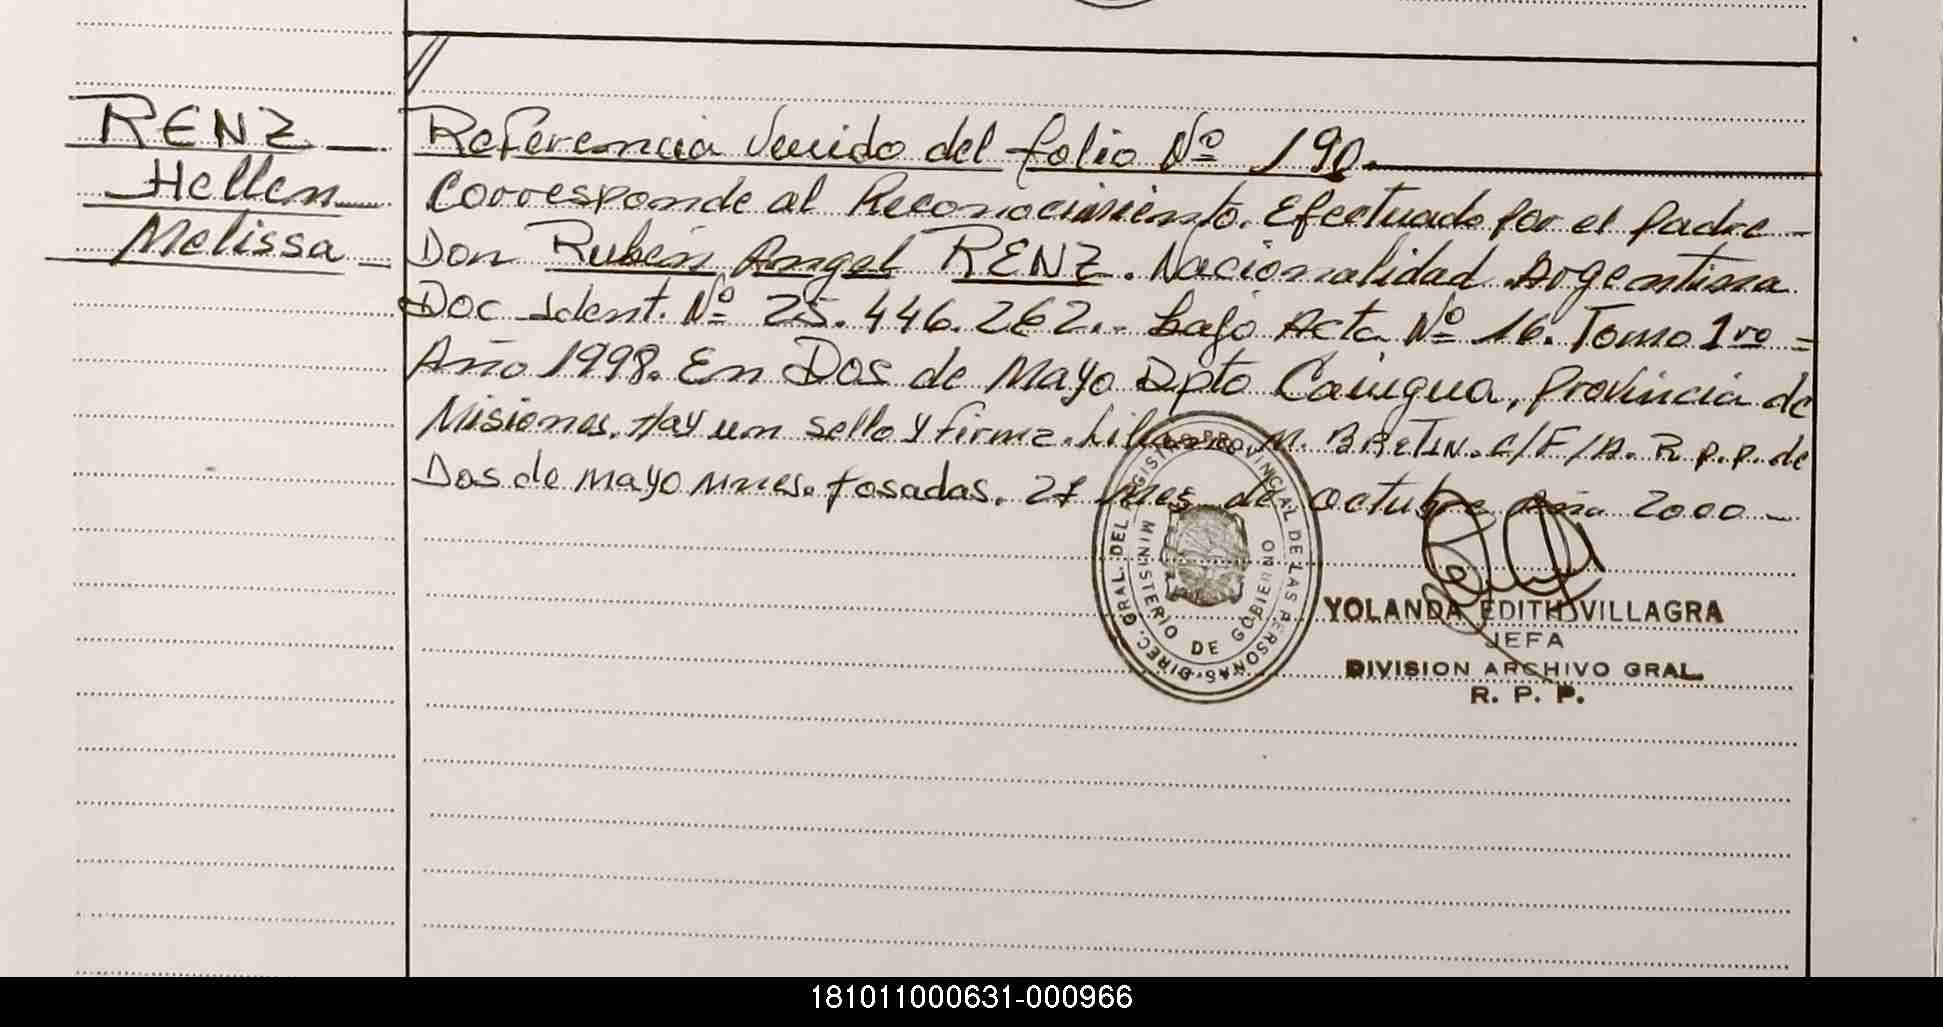 RENZ
Hellen
Melissa
Referencia venido del folio Nº 190.
Corresponde al Reconocimiento. Efectuado por el padre
Don Rubén Angel RENZ. Nacionalidad Argentina
Doc Ident. Nº 25.446.262.- bajo Acta Nº 16. Tomo 1ro =
Año 1998. En Dos de Mayo Dpto Cainguа, Provincia de
Misiones. Hay un sello y firma. Liliana M. BRETIN. C/F/A. R.P.P. de
Dos de Mayo Mnes. Posadas. 27 mes de octubre Año 2000 -
DIREC. GRAL. DEL REGISTRO PROVINCIAL DE LAS PERSONAS
MINISTERIO DE GOBIERNO
YOLANDA EDITH VILLAGRA
JEFA
DIVISION ARCHIVO GRAL.
R. P. P.
181011000631-000966